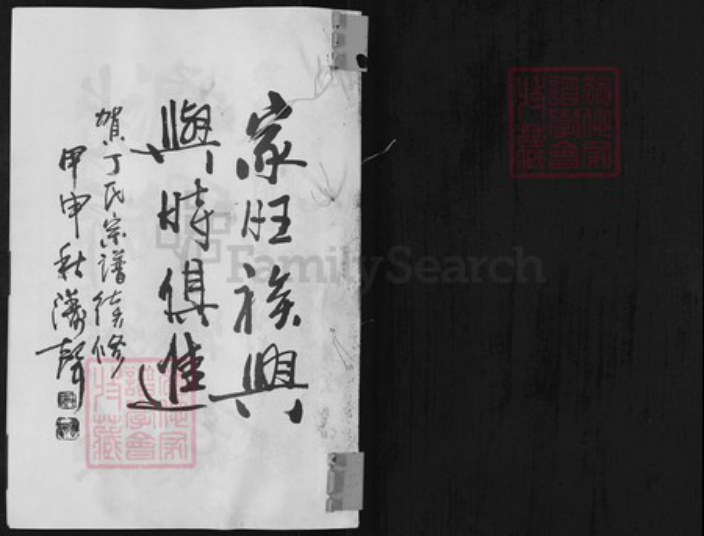 家旺族興
與時俱進
賀丁氏宗譜續修
甲申秋
FamilySearch